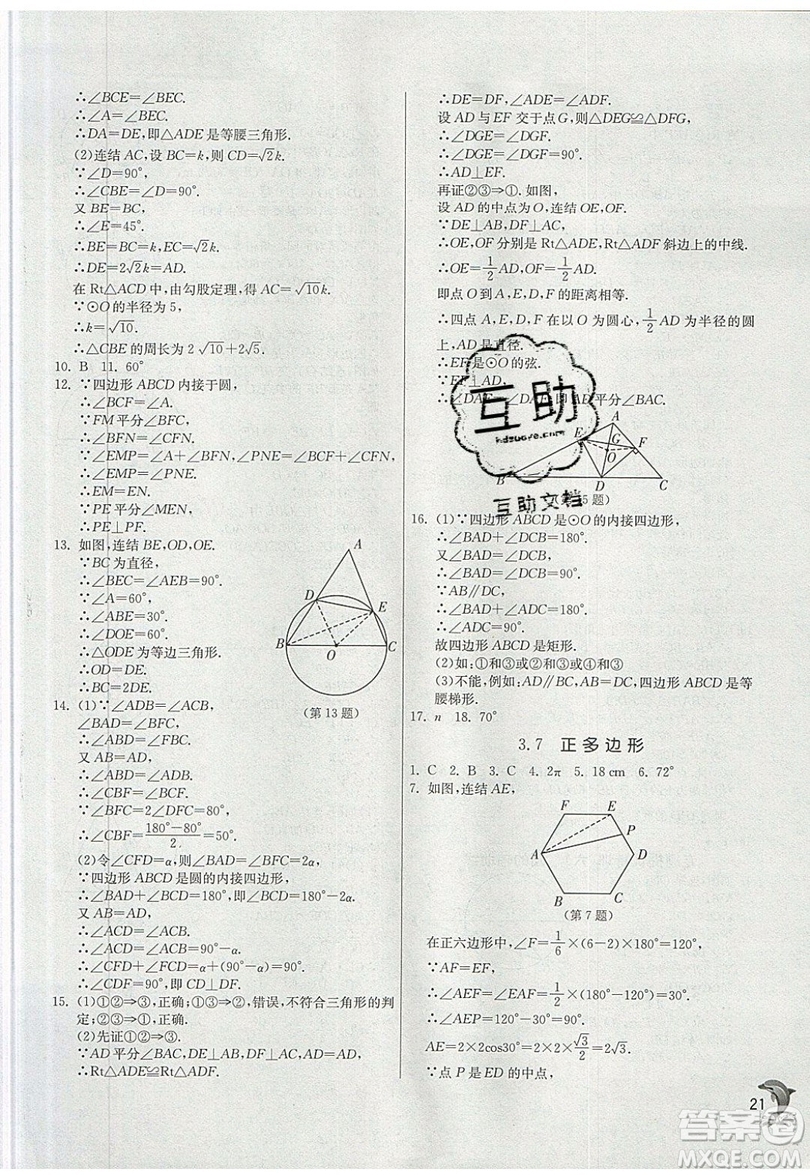 ∴∠BCE=∠BEC.
∴∠A=∠BEC.
∴DA=DE,即△ADE是等腰三角形.
(2)连结AC,设BC=k,则CD=√2k.
∵∠D=90°,
∴∠CBE=∠D=90°.
又BE=BC,
∴∠E=45°.
∴BE=BC=k,EC=√2k.
∴DE=2√2k=AD.
在Rt△ACD中,由勾股定理,得AC=√10k.
∵⊙O的半径为5,
∴k=√10.
∴△CBE的周长为2√10+2√5.
10. B 11. 60°
12. ∵四边形ABCD内接于圆,
∴∠BCF=∠A.
∵FM平分∠BFC,
∴∠BFN=∠CFN.
∵∠EMP=∠A+∠BFN,∠PNE=∠BCF+∠CFN,
∴∠EMP=∠PNE.
∴EM=EN.
∵PE平分∠MEN,
∴PE⊥PF.
13. 如图,连结BE,OD,OE.
∵BC为直径,
∴∠BEC=∠AEB=90°.
∵∠A=60°,
∴∠ABE=30°.
∴∠DOE=60°.
∴△ODE为等边三角形.
∴OD=DE.
∴BC=2DE.
A
D
E
B
O
C
(第13题)
14. (1)∵∠ADB=∠ACB,
∠BAD=∠BFC,
∴∠ABD=∠FBC.
又AB=AD,
∴∠ABD=∠ADB.
∴∠CBF=∠BCF.
∵∠BFC=2∠DFC=80°,
∴∠CBF=(180°−80°)/2=50°.
(2)令∠CFD=α,则∠BAD=∠BFC=2α.
∵四边形ABCD是圆的内接四边形,
∴∠BAD+∠BCD=180°,即∠BCD=180°−2α.
又AB=AD,
∴∠ACD=∠ACB.
∴∠ACD=∠ACB=90°−α.
∴∠CFD+∠FCD=α+(90°−α)=90°.
∴∠CDF=90°.即CD⊥DF.
15. (1)①②⇒③,正确;①③⇒②,错误,不符合三角形的判
定;②③⇒①,正确.
(2)先证①②⇒③.如图.
∵AD平分∠BAC,DE⊥AB,DF⊥AC,
∴Rt△ADE≌Rt△ADF.
∴DE=DF,∠ADE=∠ADF.
设AD与EF交于点G,则△DEG≌△DFG,
∴∠DGE=∠DGF.
∴∠DGE=∠DGF=90°.
∴AD⊥EF.
再证②③⇒①.如图,
设AD的中点为O,连结OE,OF.
∵DE⊥AB,DF⊥AC,
∴OE,OF分别是Rt△ADE,Rt△ADF斜边上的中线.
∴OE=1/2AD,OF=1/2AD.
即点O到A,E,D,F的距离相等.
∴四点A,E,D,F在以O为圆心,1/2AD为半径的圆
上,AD是直径.
∴EF是⊙O的弦.
∵EF⊥AD,
∴∠DAE=∠DAF,即AD平分∠BAC.
互助
hdzuoye.com
互助文档
A
E
G
F
O
B
D
C
(第15题)
16. (1)∵四边形ABCD是⊙O的内接四边形,
∴∠BAD+∠DCB=180°.
又∠BAD=∠DCB,
∴∠BAD=∠DCB=90°.
∵AB∥DC,
∴∠BAD+∠ADC=180°.
∴∠ADC=90°.
故四边形ABCD是矩形.
(2)如:①和③或②和③或②和④.
(3)不能,例如:AD∥BC,AB=DC,四边形ABCD是等
腰梯形.
17. n 18. 70°
3.7 正多边形
1. C 2. B 3. C 4. 2π 5. 18 cm 6. 72°
7. 如图,连结AE,
F
E
P
A
D
B
C
(第7题)
在正六边形中,∠F=1/6×(6−2)×180°=120°,
∵AF=EF,
∴∠AEF=∠EAF=30°.
∴∠AEP=120°−30°=90°,
AE=2×2cos30°=2×2×√3/2=2√3.
∵点P是ED的中点,
21
答案圈
MXQE.COM